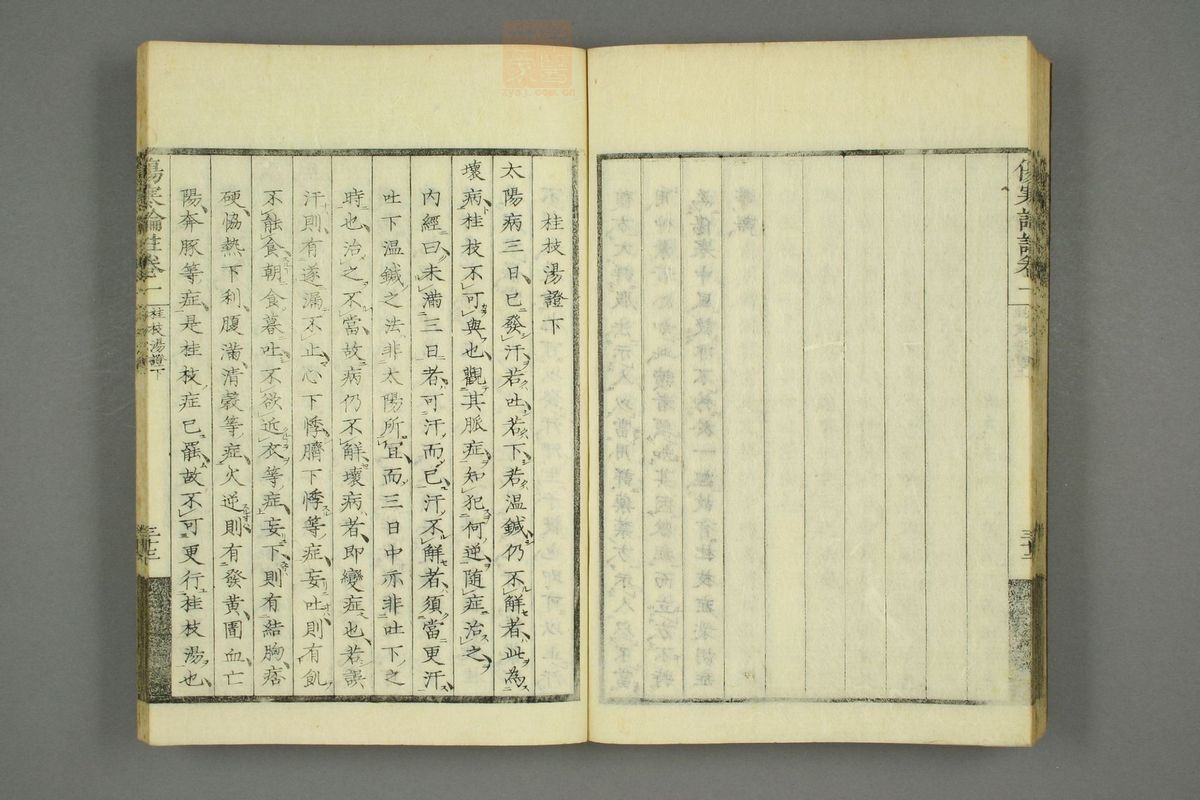 桂枝湯證下
太陽病三日已發汗若吐若下若温鍼仍不解者此為
壞病桂枝不可與也觀其脈症知犯何逆隨症治之
内經曰未滿三日者可汗而已汗不解者須當更汗
吐下温鍼之法非太陽所宜而三日中亦非吐下之
時也治之不當故病仍不解壞病者即變症也若誤
汗則有遂漏不止心下悸臍下悸等症妄吐則有飢
不能食朝食暮吐不欲近衣等症妄下則有結胸痞
硬協熱下利腹滿清穀等症火逆則有發黄圊血亡
陽奔豚等症是桂枝症已罷故不可更行桂枝湯也
桂枝湯證下
三十三